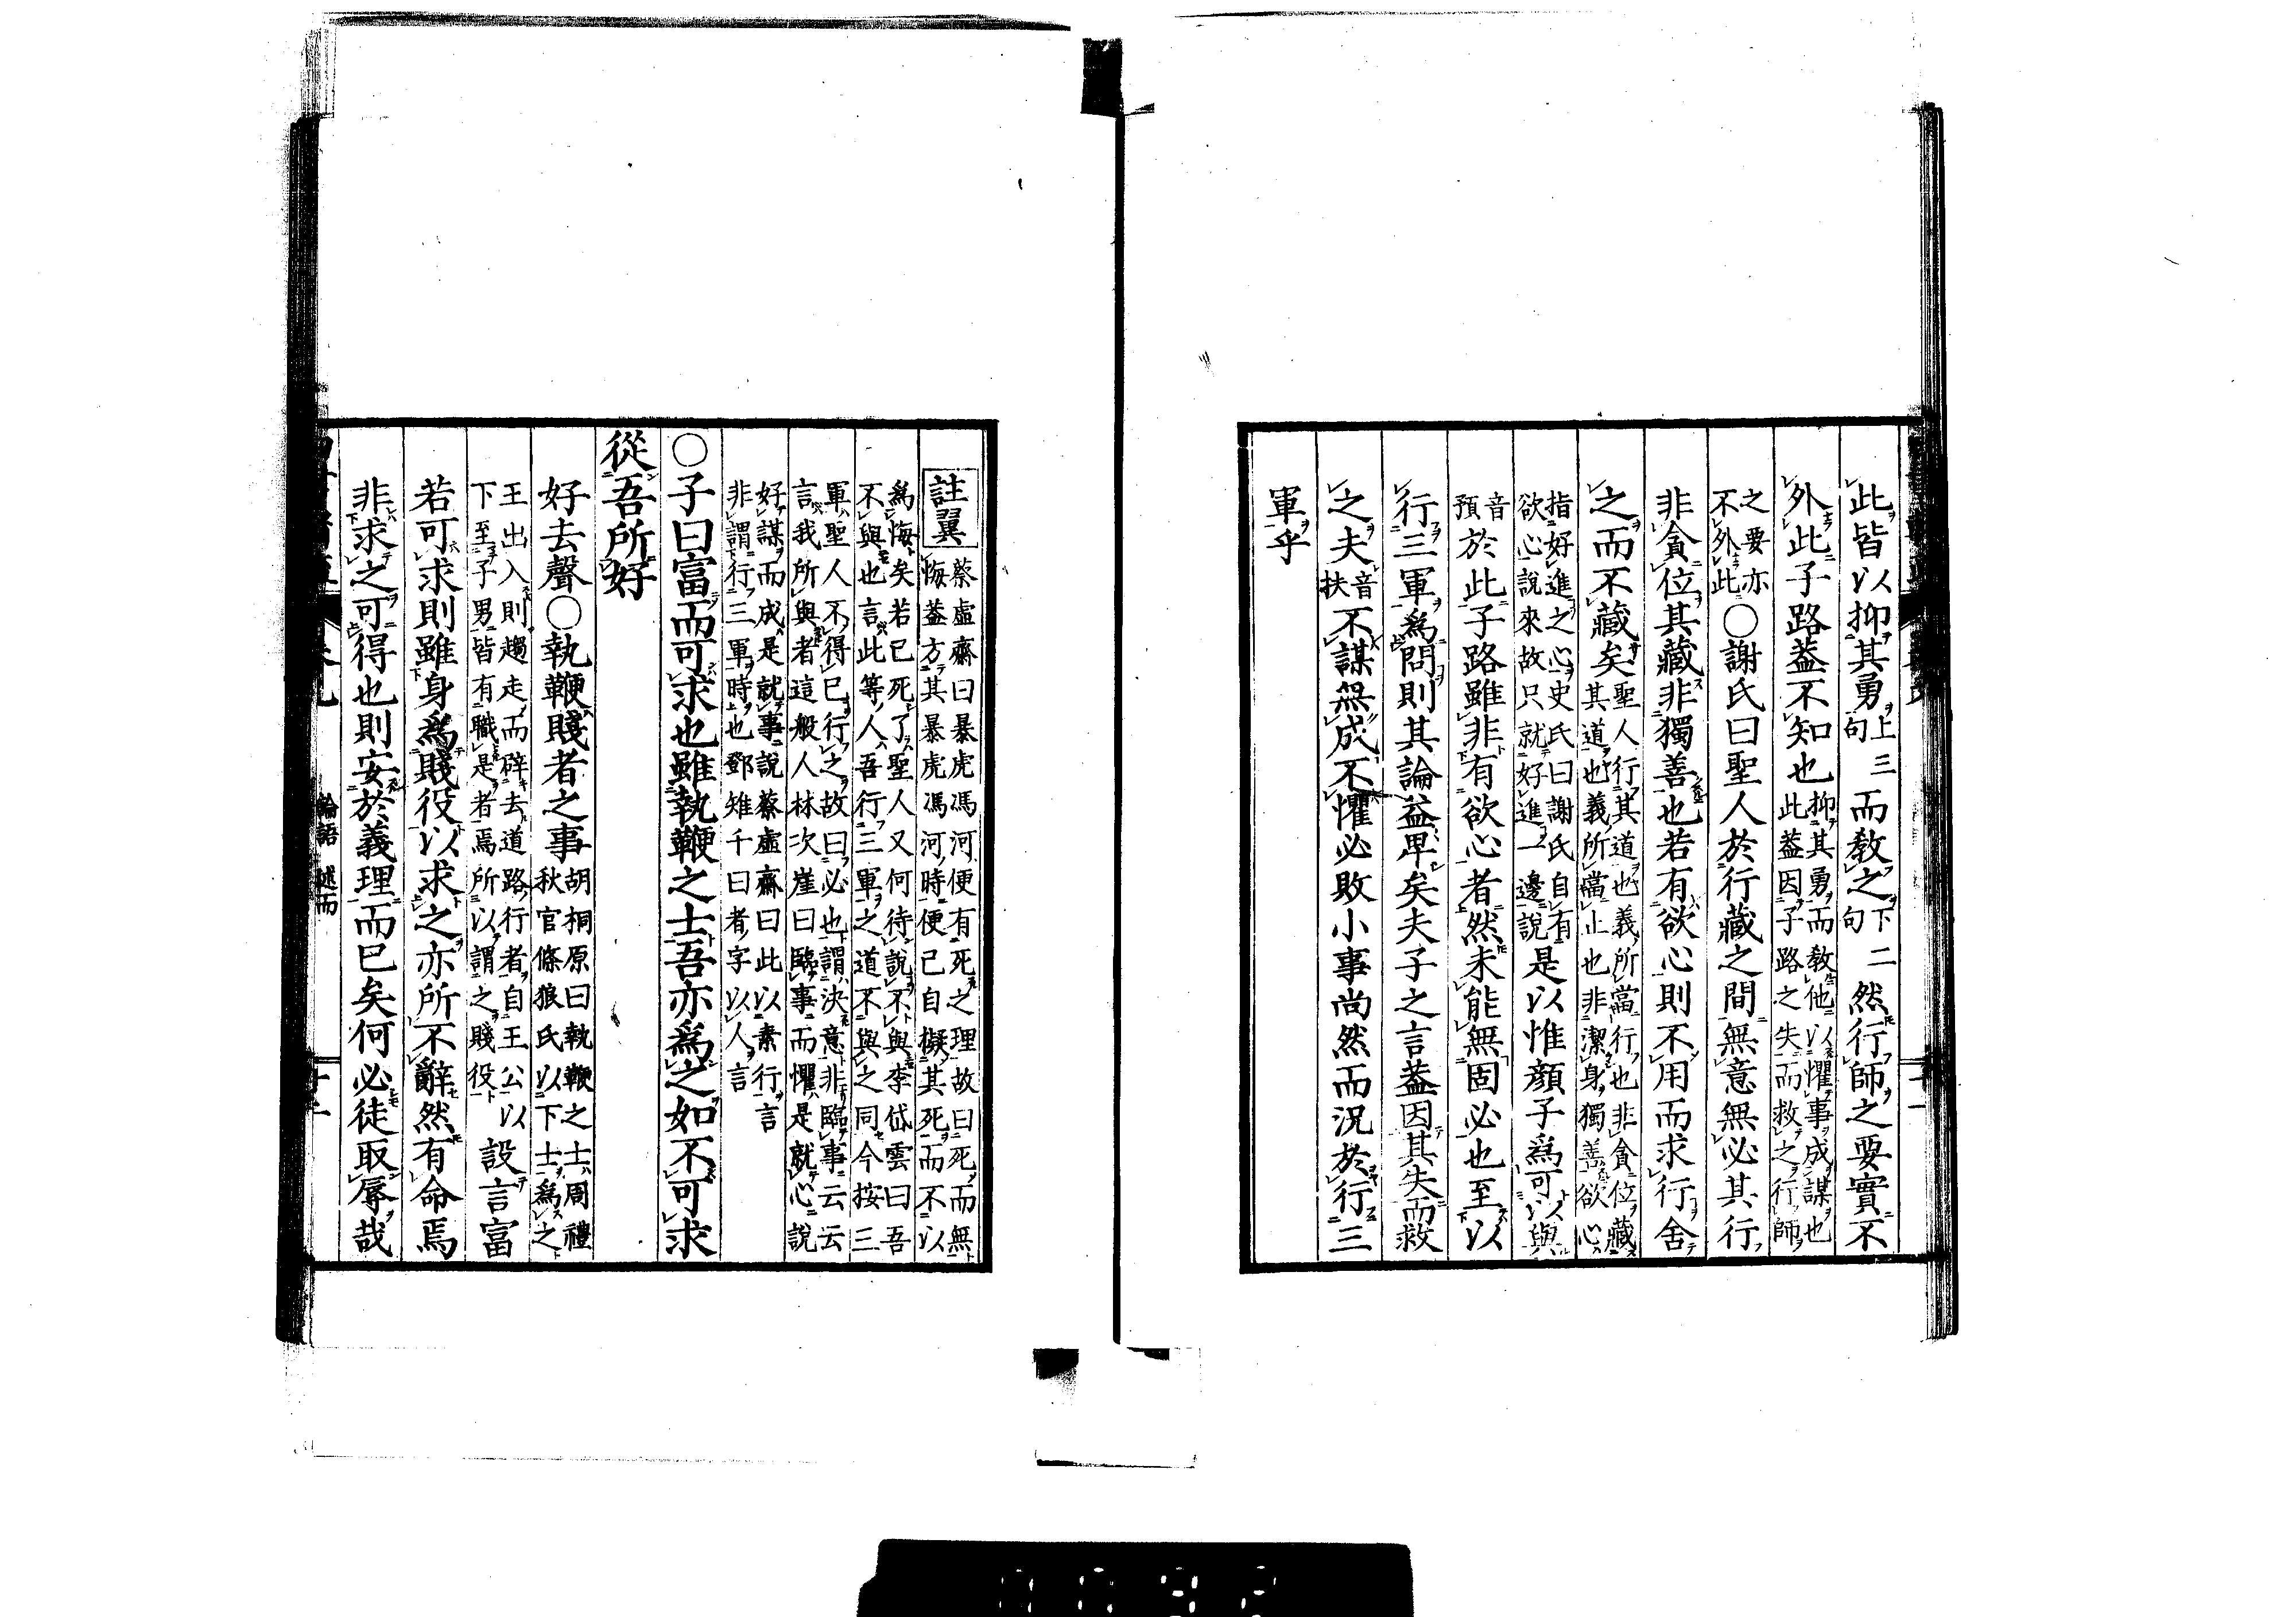 此皆以抑其勇上三句而教之下二句然行師之要實不
外此子路蓋不知也抑其勇而教他以懼事成謀也
此蓋因子路之失而救之行師
之要亦
不外此〇謝氏曰聖人於行藏之間無意無必其行
非貪位其藏非獨善也若有欲心則不用而求行舍
之而不藏矣聖人行其道也義所當行也非貪位藏
其道也義所當止也非潔身獨善欲心
指好進之心史氏曰謝氏自有
欲心說來故只就好進一邊說是以惟顏子為可以與
於此子路雖非有欲心者然未能無固必也至以
音預
行三軍為問則其論益卑矣夫子之言蓋因其失而救
之夫音扶不謀無成不懼必敗小事尚然而況於行三
軍乎
註翼
蔡虛齋曰暴虎馮河便有死之理故曰死而無
悔蓋方其暴虎馮河時便已自擬其死而不以
為悔矣若已死了聖人又何待說不與李岱雲曰吾
不與也言此等人吾行三軍之道不與之同今按三
軍聖人不得已行之故曰必也謂決意非臨事云云
言我所與者這般人林次崖曰臨事而懼是就心說
好謀而成是就事說蔡虛齋曰此以素行言
非謂行三軍時也鄧雉千曰者字以人言
〇子曰富而可求也雖執鞭之士吾亦為之如不可求
從吾所好
好去聲〇執鞭賤者之事胡桐原曰執鞭之士周禮
秋官條狼氏以下士為之
王出入則趨走而辟去道路行者自王公以
下至子男皆有職是者焉所以謂之賤役設言富
若可求則雖身為賤役以求之亦所不辭然有命焉
非求之可得也則安於義理而已矣何必徒取辱哉
論語 述而